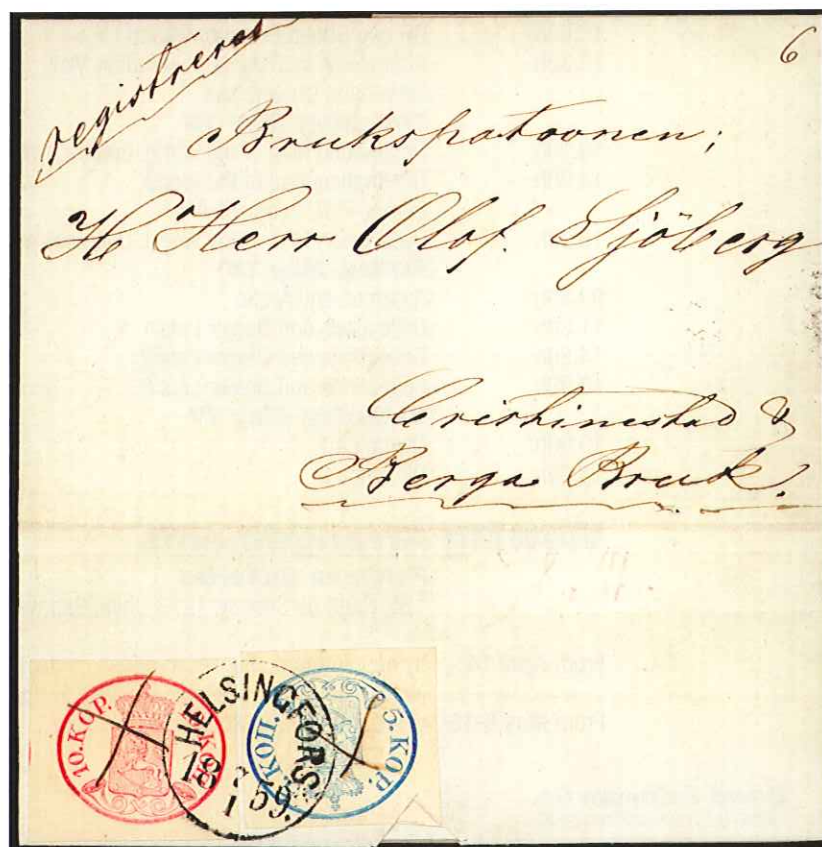 registreras
6
Brukspatronen;
H Herr Olof. Sjöberg
Cristinestad &
Berga Bruk.
10. KOP.
10. КОП.
HELSINGFORS.
18 59.
1
КОП.
5. KOP.